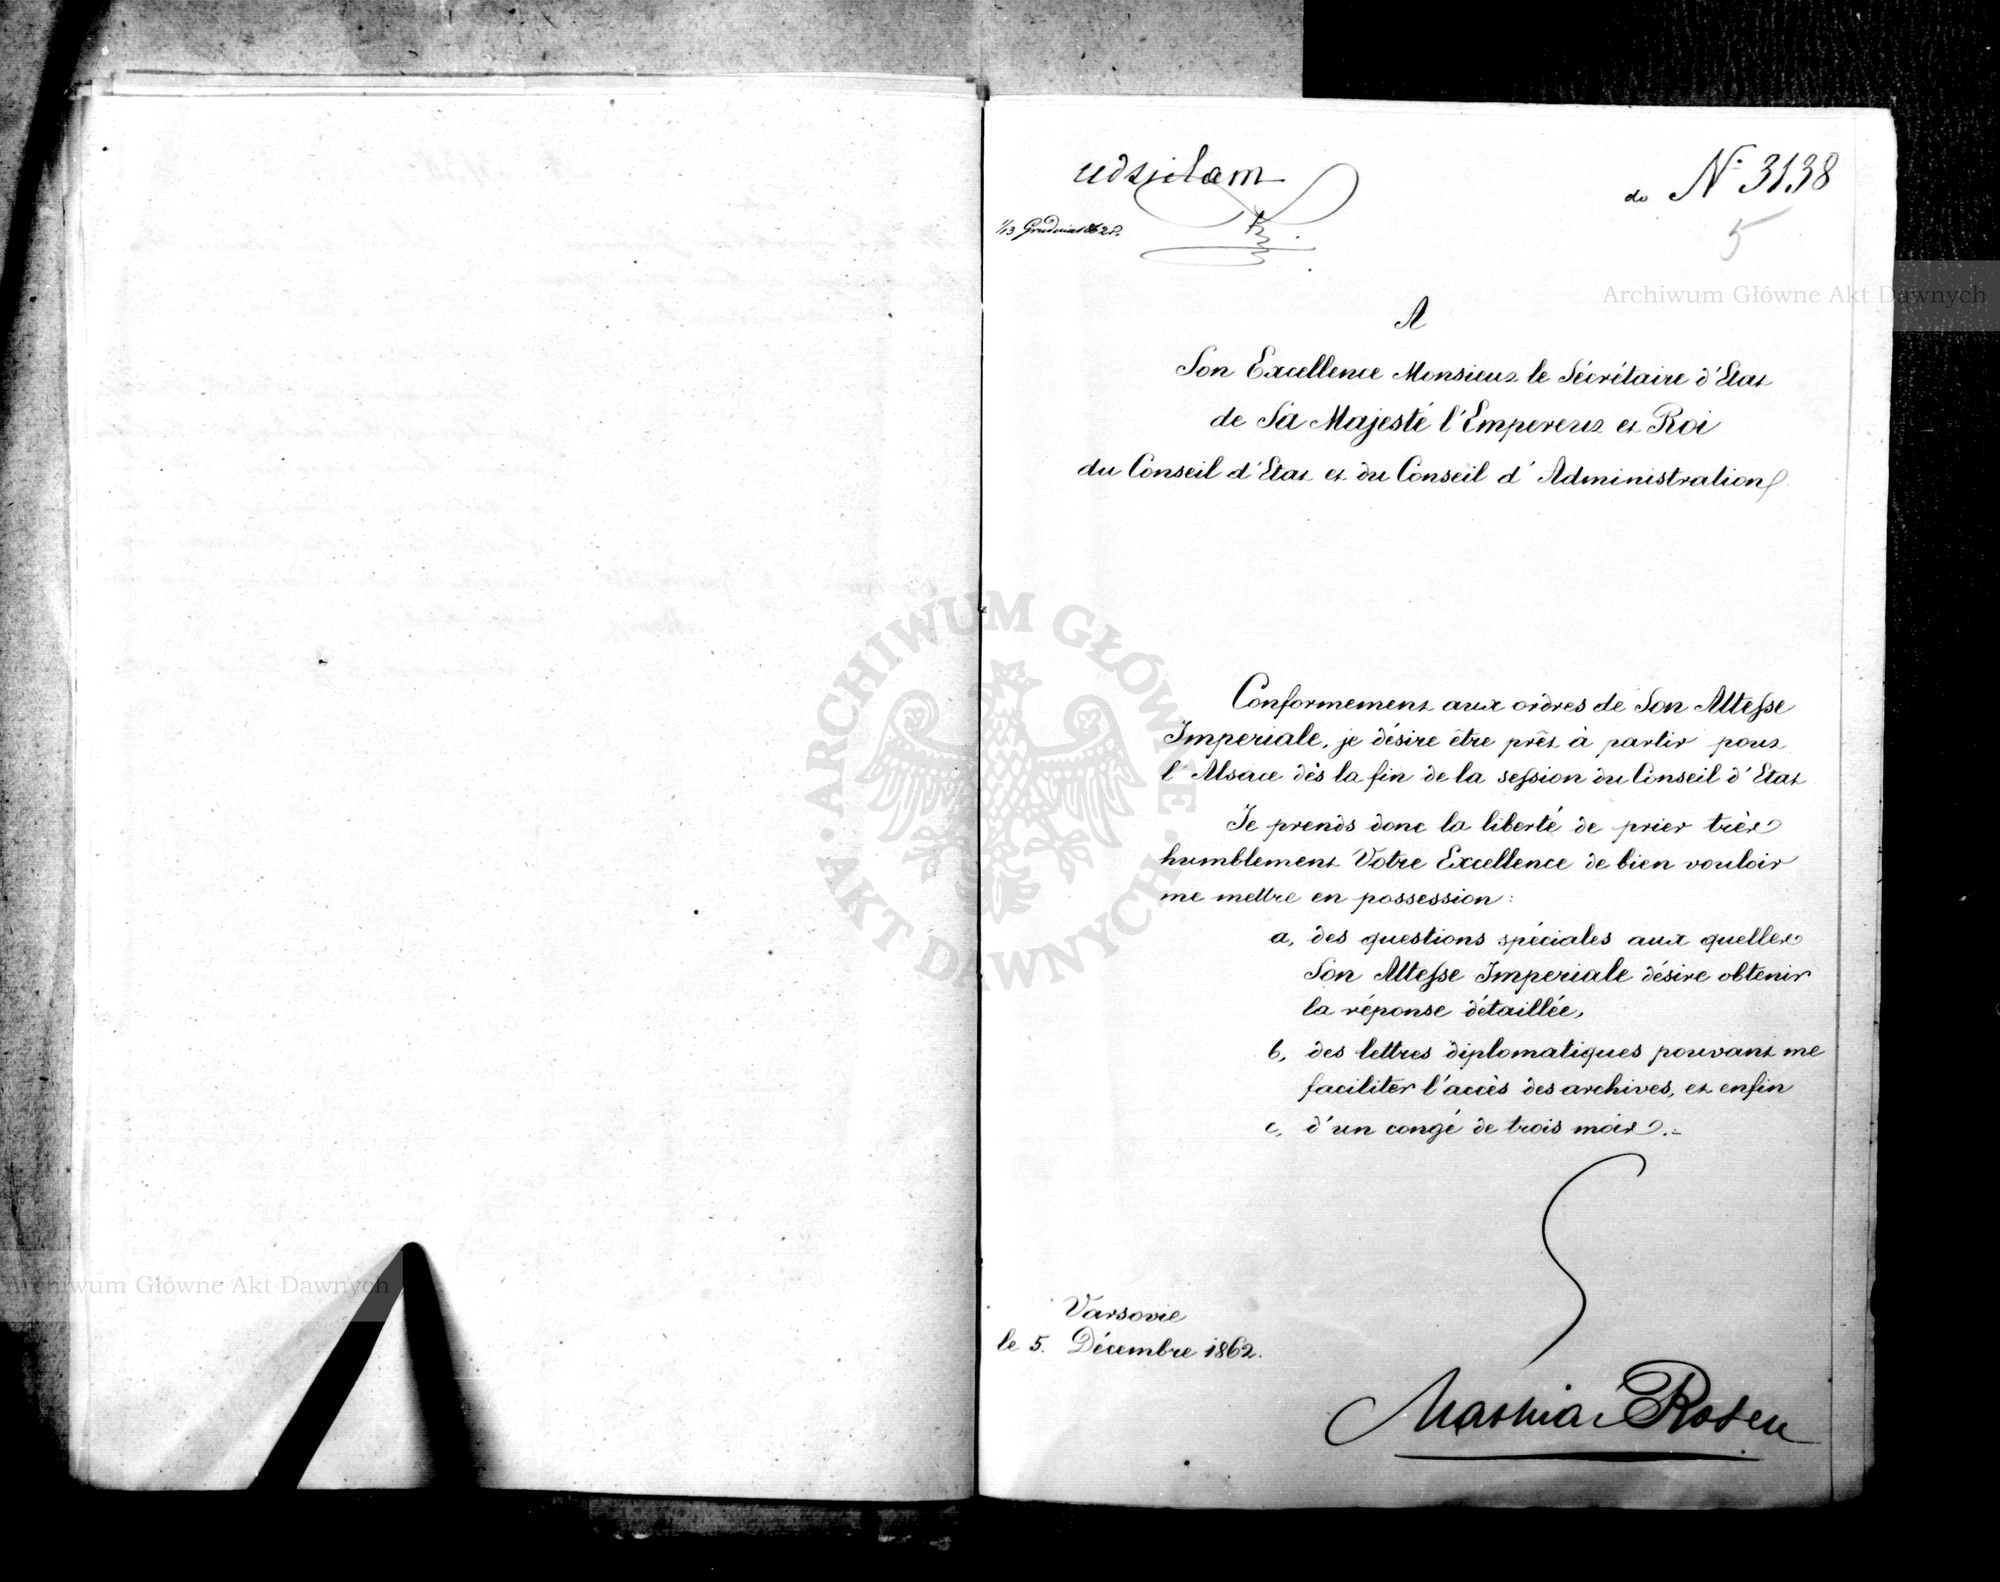 udzielam
1/13 Grudnia 1862 r.
do N° 3138
5
A
Son Excellence Monsieur le Sécrétaire d'Etat
de Sa Majesté l'Empereur et Roi
du Conseil d'Etat et du Conseil d'Administration
Conformement aux ordres de Son Altesse
Imperiale, je désire être prêt à partir pour
l'Alsace dès la fin de la session du Conseil d'Etat
Je prends donc la liberté de prier très
humblement Votre Excellence de bien vouloir
me mettre en possession:
a, des questions spéciales aux quelles
Son Altesse Imperiale désire obtenir
la réponse détaillée,
b, des lettres diplomatiques pouvant me
faciliter l'accès des archives, et enfin
c, d'un congé de trois mois.
Varsovie
le 5. Décembre 1862.
Mathias Rosen
Archiwum Główne Akt Dawnych
ARCHIWUM GŁÓWNE AKT DAWNYCH
Archiwum Główne Akt Dawnych